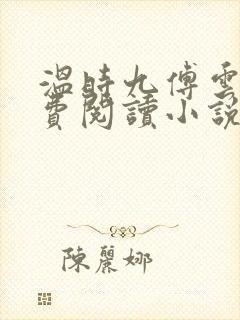 溫時九傅雲
費閱讀小說
陳麗娜